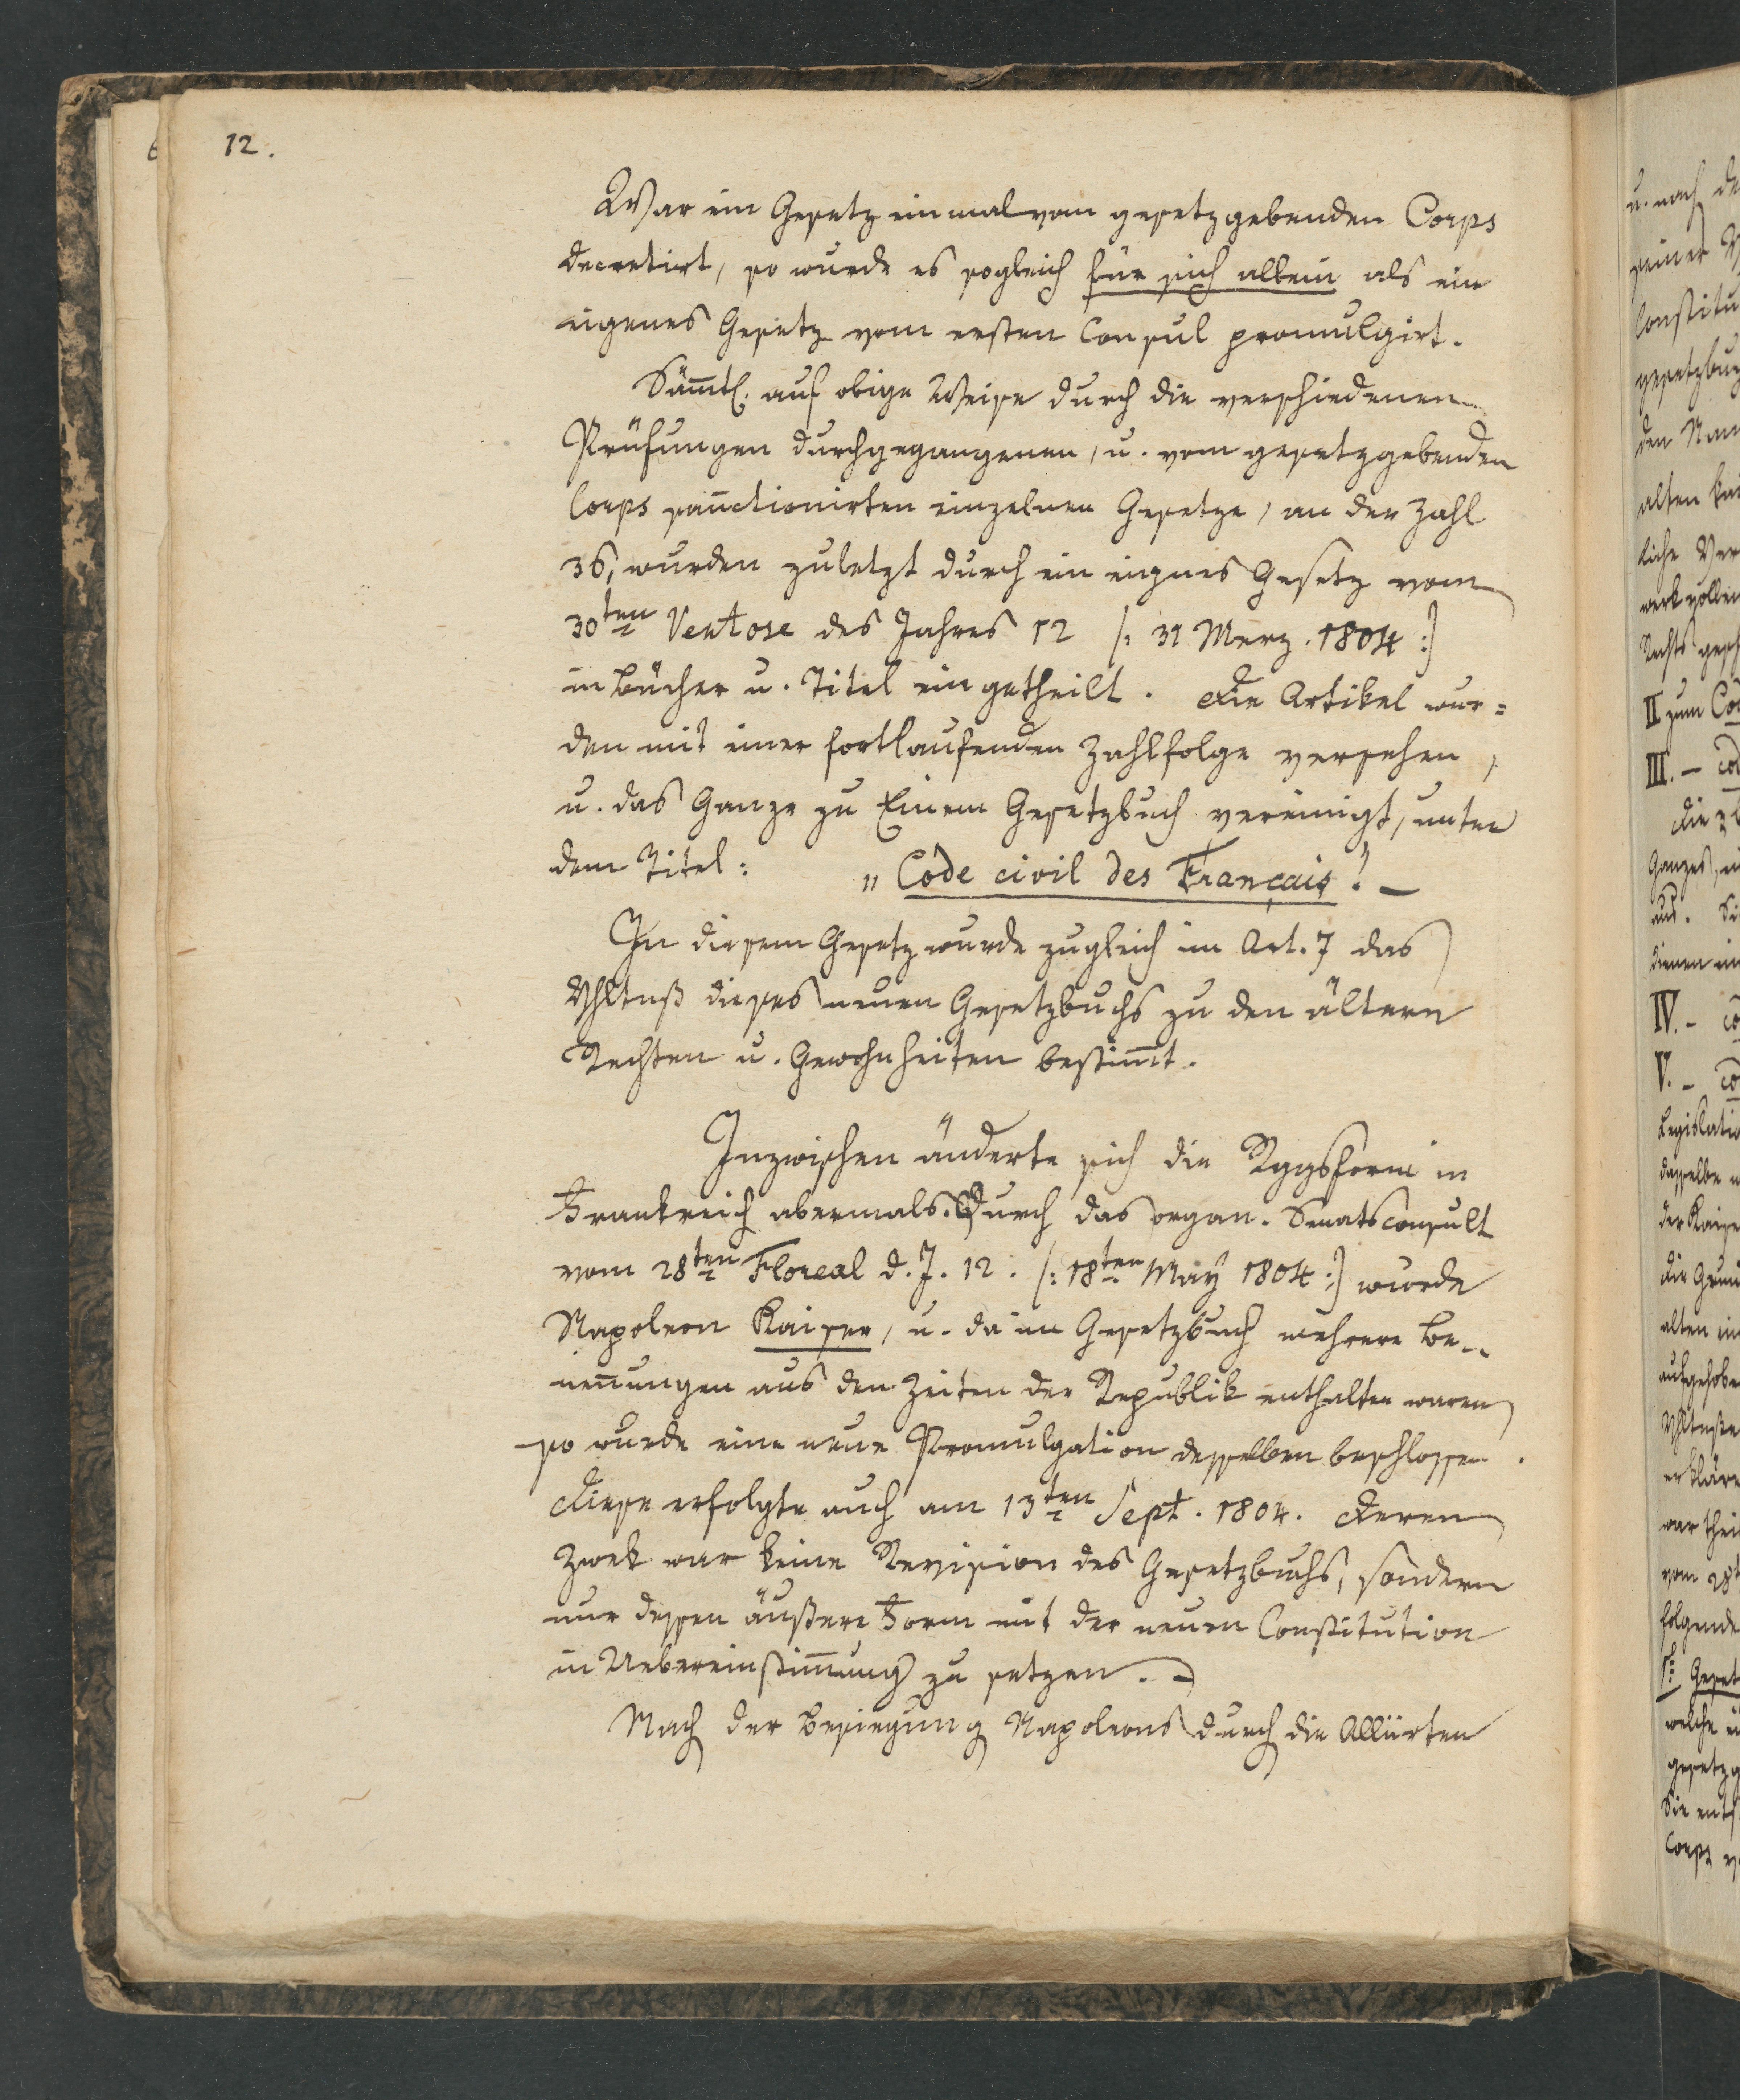 12.
War ein Gesetz einmal vom gesetzgebenden Corps
decretirt, so wurde es sogleich für sich allein als ein
eigenes Gesetz vom ersten Consul promulgirt.
Säm̄tl. auf obige Weise durch die verschiedenen
Prüfungen durchgegangenen, u. vom gesetzgebenden
Corps san̄ctionirten einzelnen Gesetze, an der Zahl
36, wurden zuletzt durch ein eignes Gesetz vom
30ten Ventose des Jahres 12 |: 31 Merz. 1804 :|
in Bücher u. Titel eingetheilt. Die Artikel wur=
den mit einer fortlaufenden Zahlfolge versehen,
u. das Ganze zu Einem Gesetzbuch vereinigt, unter
dem Titel: „Code civil des Français“. –
In diesem Gesetz wurde zugleich im Art. 7 das
Vhltniß dieses neuen Gesetzbuchs zu den ältern
Rechten u. Gewohnheiten bestim̄t.
Inzwischen änderte sich die Rggsform in
Frankreich abermals. Durch das organ. Senatsconsult
vom 28ten Floreal d. J. 12. |: 18ten May 1804 :| wurde
Napoleon Kaiser, u. da im Gesetzbuch mehrere Be-
nen̄ungen aus den Zeiten der Republik enthalten waren
so wurde eine neue Promulgation desselben beschlossen.
Diese erfolgte auch am 13ten Sept. 1804. Deren
Zwek war keine Revision des Gesetzbuchs, sondern
nur dessen äußere Form mit der neuen Constitution
in Uebereinstim̄ung zu setzen. –
Nach der Besiegung Napoleons durch die Alliirten
u. nach de
seiner V
Constitu
gesetzbuch
den Nam
alten
liche Ver
Rechts
II zum Co
III. – co
Die 3
Ganzes,
aus. Si
dienen
IV. – co
V. – co
Legislatio
dasselbe
der Kaise
die Grun
alten in
aufgehobe
erkläre
war thei
vom 28t
folgende
Geset
welche
gesetzg
Sie
Corps v